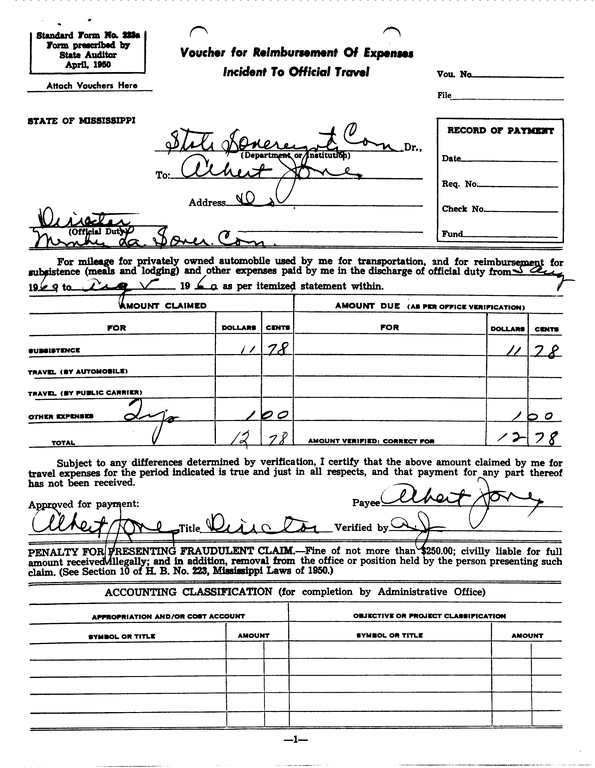 Standard Form No. 223a
Form prescribed by
State Auditor
April, 1950
Attach Vouchers Here
Voucher for Reimbursement Of Expenses
Incident To Official Travel
Vou. No.
File
STATE OF MISSISSIPPI
State Sovereignty Com Dr.,
(Department or Institution)
To: Albert Jones
Address Do
Director
(Official Duty)
Sover. Com.
RECORD OF PAYMENT
Date
Req. No.
Check No.
Fund
For mileage for privately owned automobile used by me for transportation, and for reimbursement for
subsistence (meals and lodging) and other expenses paid by me in the discharge of official duty from 5 Aug
1960 to Aug 1960 as per itemized statement within.
AMOUNT CLAIMED AMOUNT DUE (AS PER OFFICE VERIFICATION)
FOR DOLLARS CENTS FOR DOLLARS CENTS
SUBSISTENCE 11 78 11 78
TRAVEL (BY AUTOMOBILE)
TRAVEL (BY PUBLIC CARRIER)
OTHER EXPENSES Tips 1 00 1 00
TOTAL 12 78 AMOUNT VERIFIED; CORRECT FOR 12 78
Subject to any differences determined by verification, I certify that the above amount claimed by me for
travel expenses for the period indicated is true and just in all respects, and that payment for any part thereof
has not been received.
Payee Albert Jones
Approved for payment:
Albert Jones Title Director Verified by AJ
PENALTY FOR PRESENTING FRAUDULENT CLAIM.—Fine of not more than $250.00; civilly liable for full
amount received illegally; and in addition, removal from the office or position held by the person presenting such
claim. (See Section 10 of H. B. No. 223, Mississippi Laws of 1950.)
ACCOUNTING CLASSIFICATION (for completion by Administrative Office)
APPROPRIATION AND/OR COST ACCOUNT OBJECTIVE OR PROJECT CLASSIFICATION
SYMBOL OR TITLE AMOUNT SYMBOL OR TITLE AMOUNT
—1—